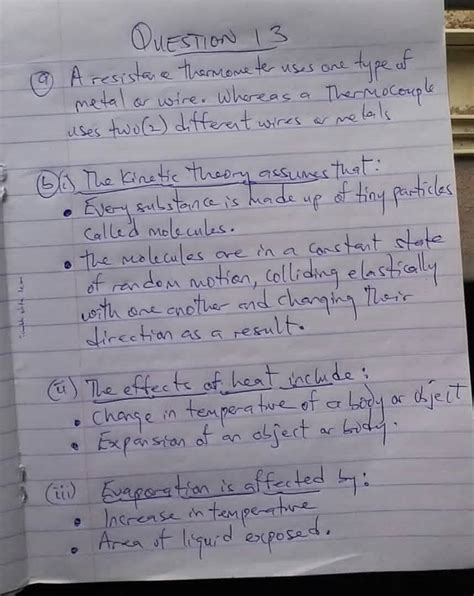 QUESTION 13
(a) A resistance thermometer uses one type of
metal or wire. Whereas a Thermocouple
uses two(2) different wires or metals
(b)(i) The kinetic theory assumes that:
• Every substance is made up of tiny particles
called molecules.
• The molecules are in a constant state
of random motion, colliding elastically
with one another and changing their
direction as a result.
(ii) The effects of heat include:
• Change in temperature of a body or object
• Expansion of an object or body.
(iii) Evaporation is affected by:
• Increase in temperature
• Area of liquid exposed.